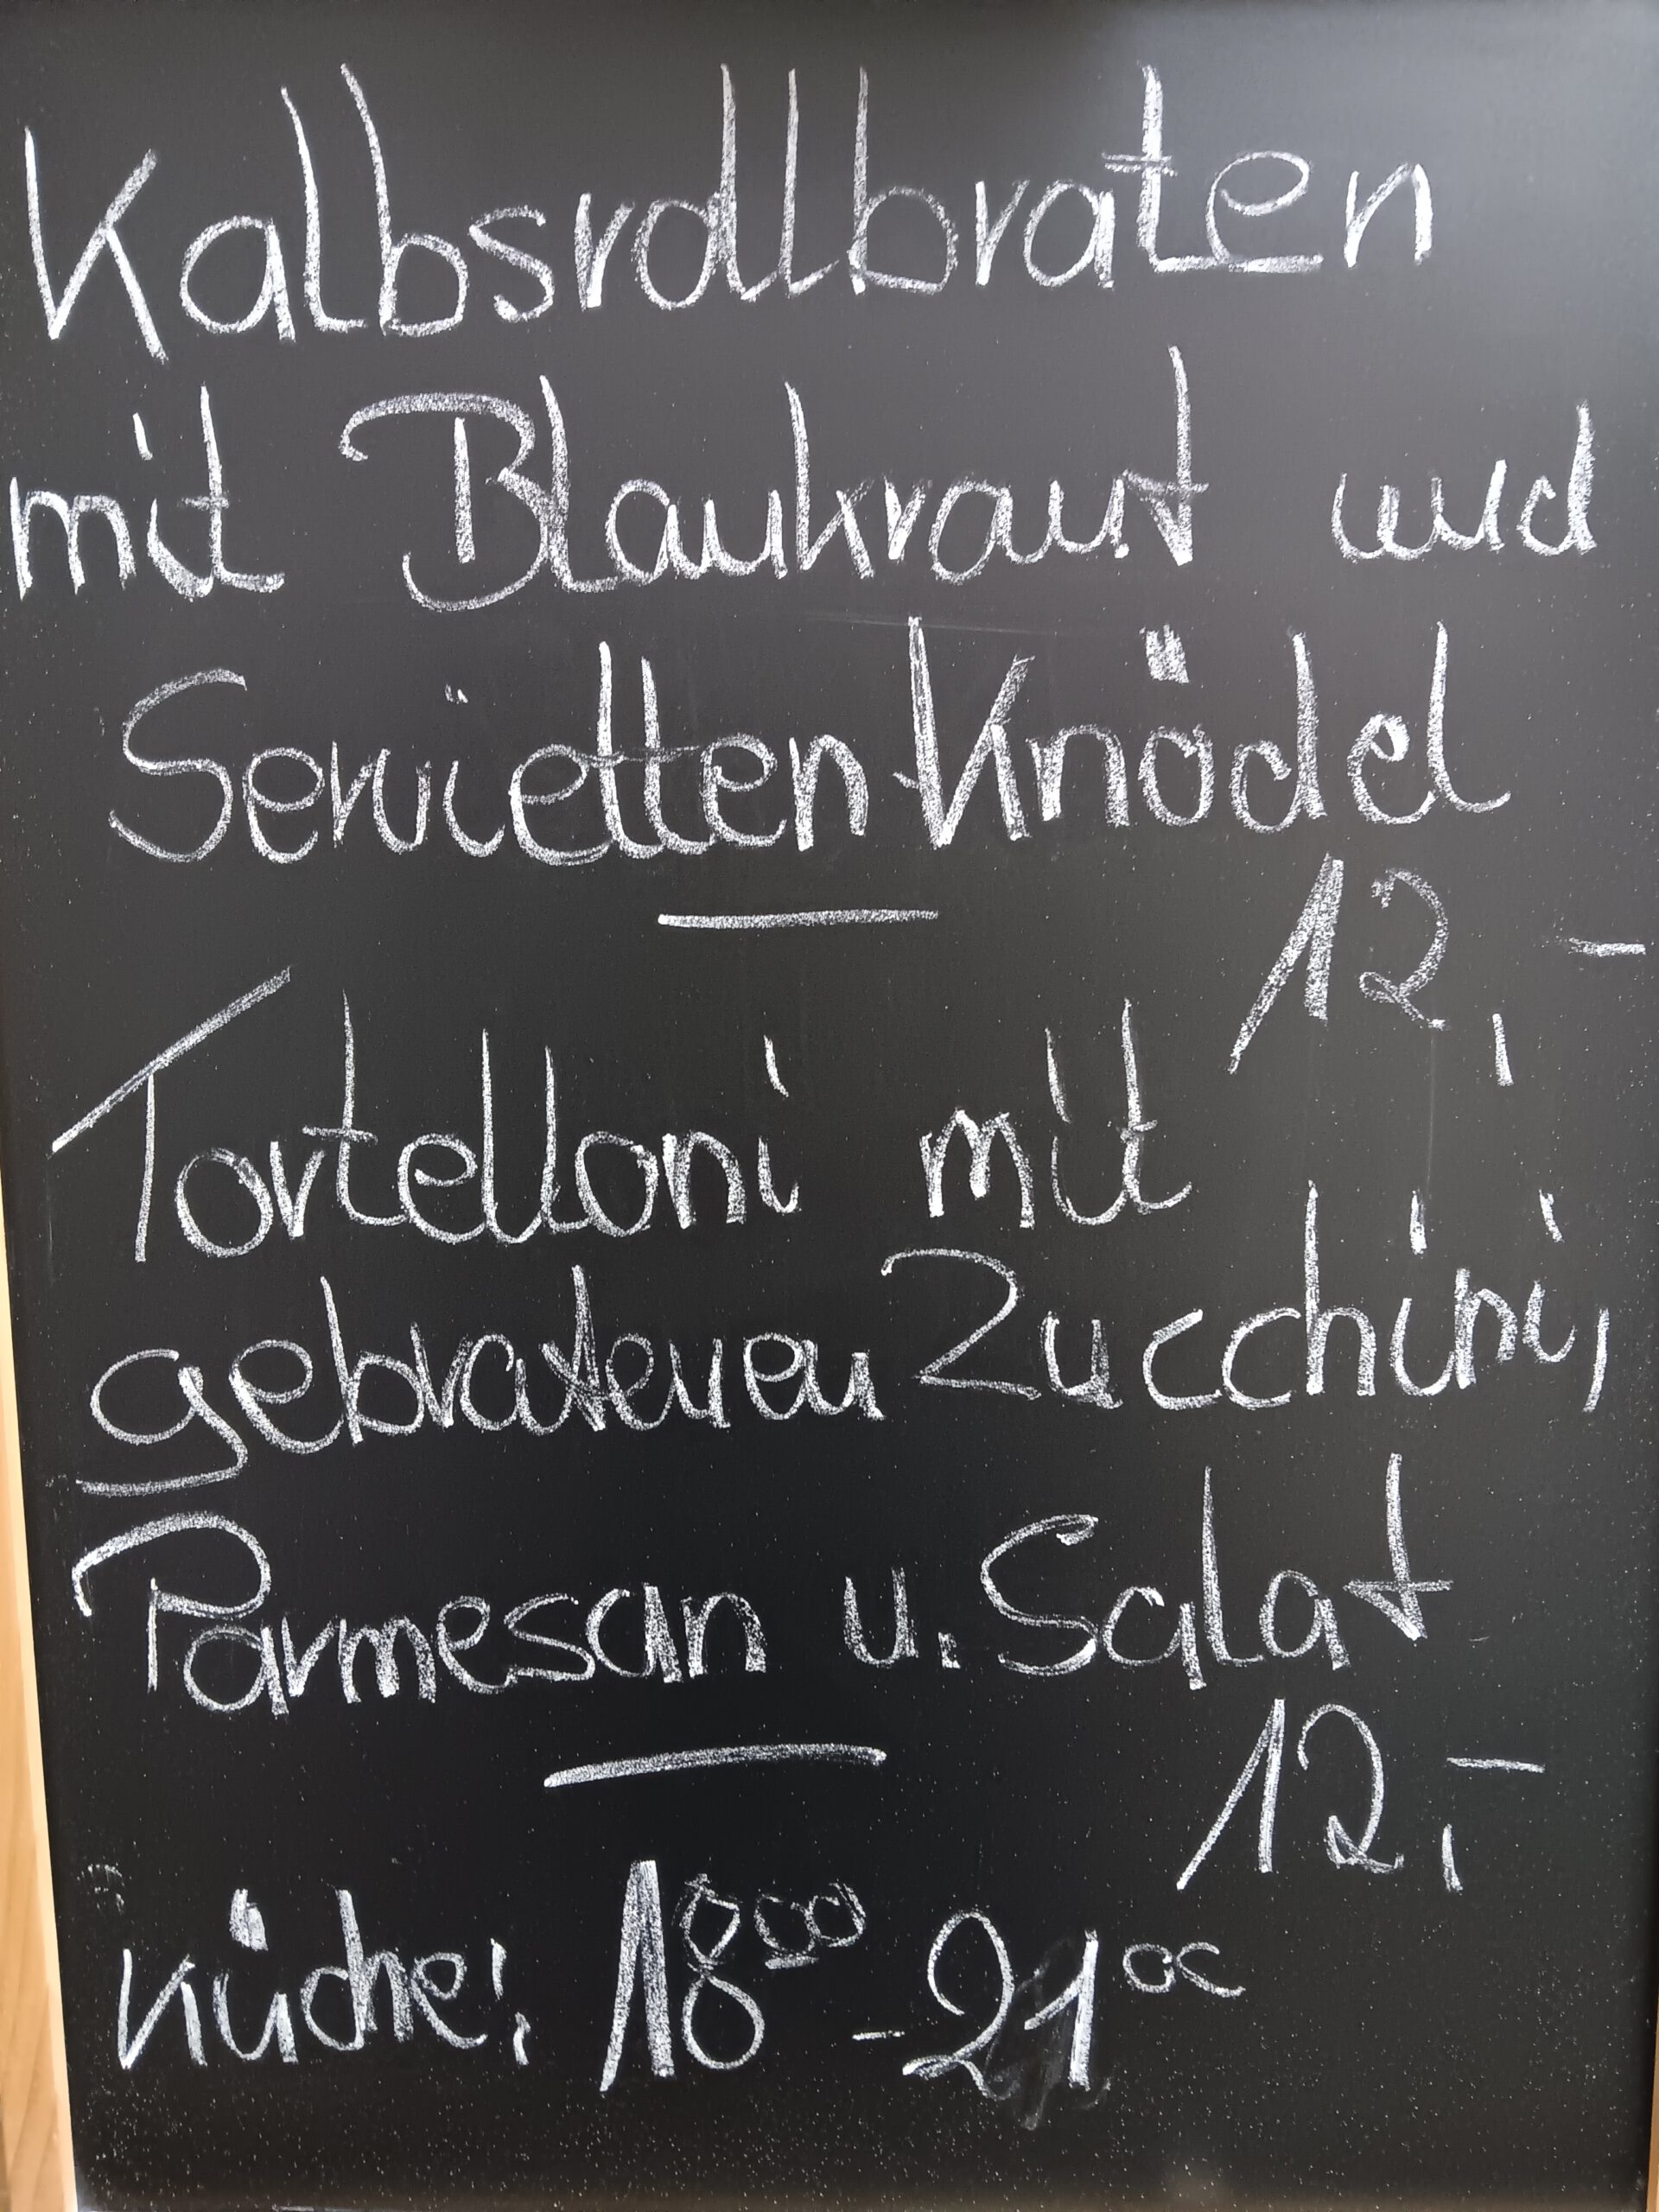 Kalbsrollbraten
mit Blaukraut und
Servietten-Knödel
12,-
Tortelloni mit
gebratenen Zucchini,
Parmesan u. Salat
12,-
Küche: 18⁰⁰ - 21⁰⁰